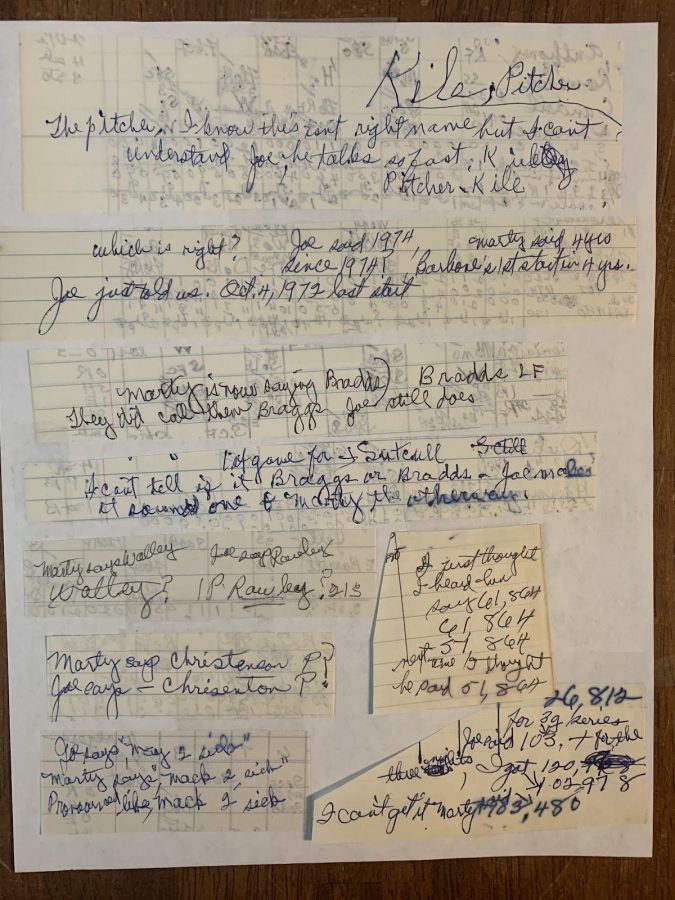 Kile, Pitcher
The pitcher, I know this isnt right name but I cant
understand Joe, he talks so fast,
Pitcher - Kile
which is right? Joe said 1974, Marty said 4 yrs
since 1974! Barbone's 1st start in 4 yrs.
Joe just told us. Oct. 4, 1972 last start
Marty is now saying Bradds) Bradds LF
They did call them Braggs Joe still does
1st game for
I cant tell if it Braggs or Bradds - Joe makes
it sound one & Marty the otherway.
Marty says Walley Joe says Rawley
Walley? 1P Rawley? 213
Marty says Christenson P?
Joe says - Chrisenton P?
Jo says "may 2 sick"
"Marty says", mack 2 sick"
Pronounced like, mack 2 sick
I just thought
I heard him
say 61,864
61,864
51,864
next time I thought
he said 51,864
26,812
for 3g series
Joe said 103, + for the
three nights, I got 120,
102,978
I can't get it Marty 103,480